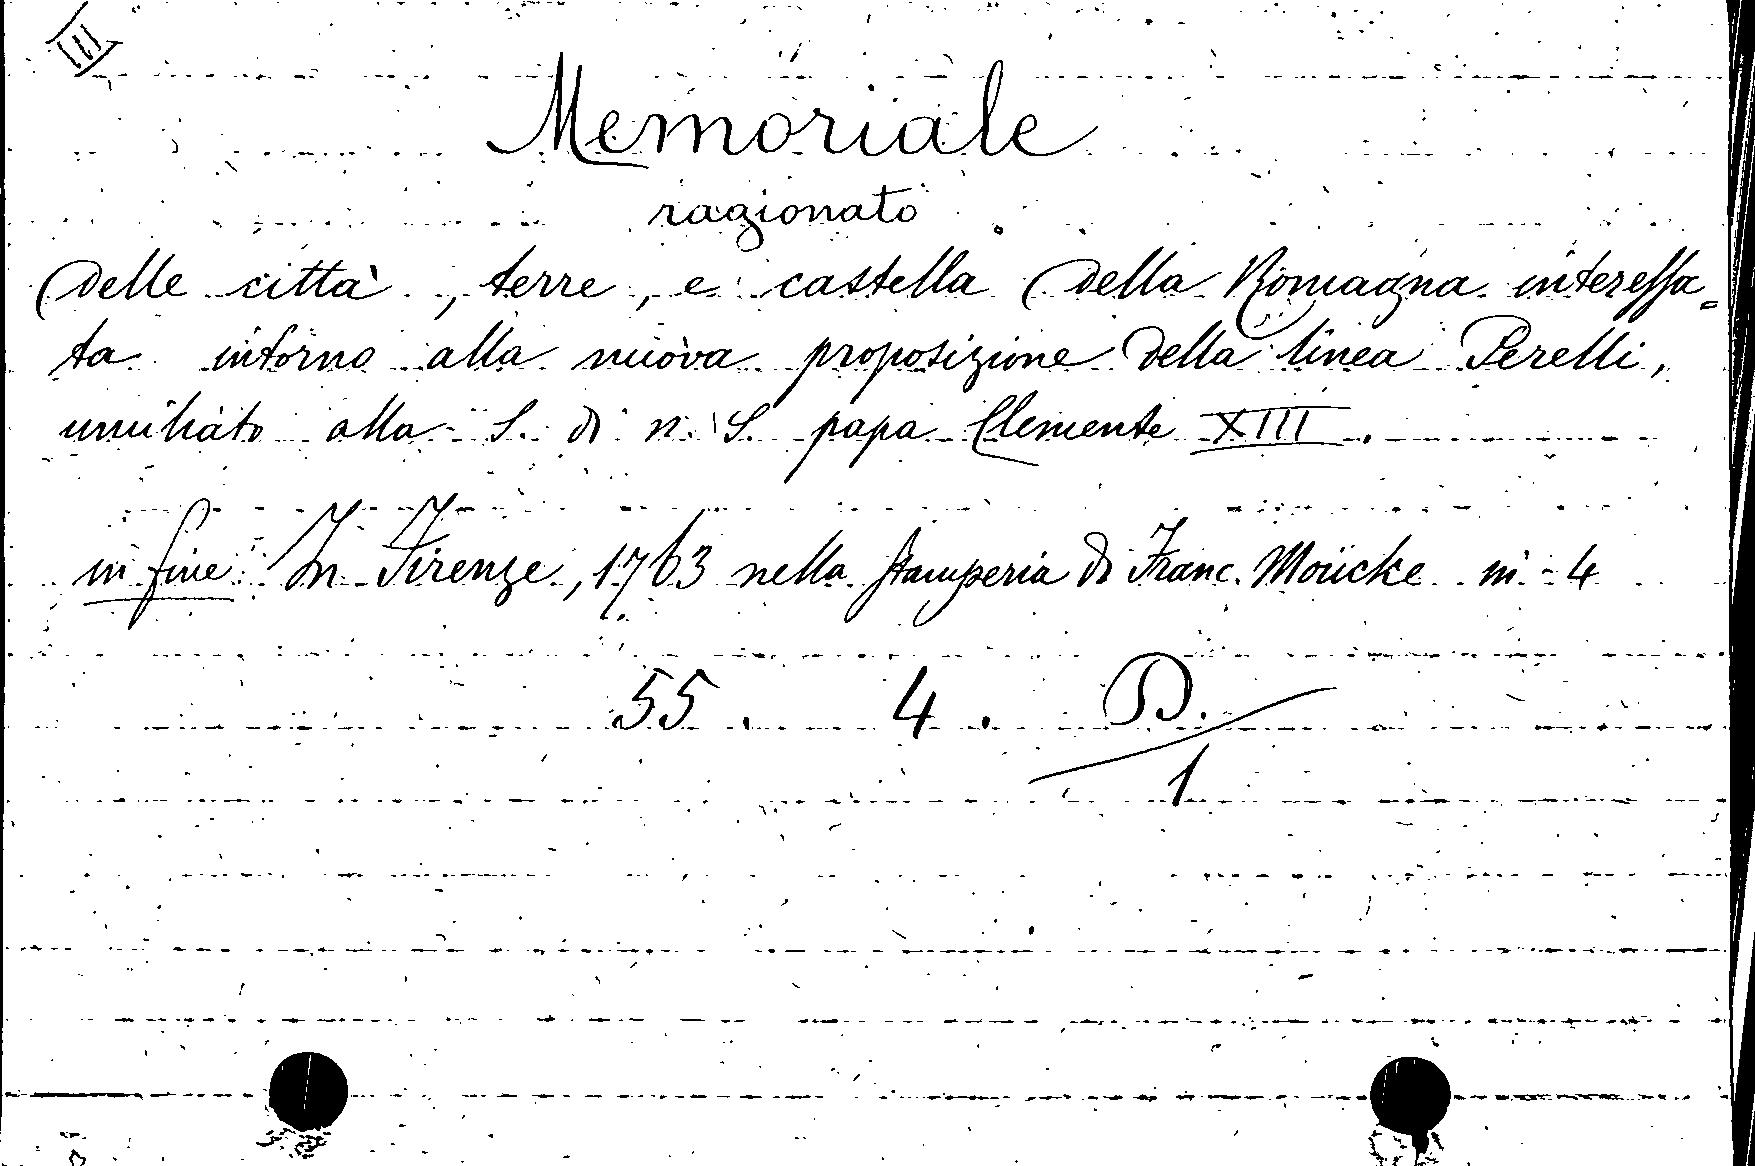 III
Memoriale
ragionato
delle città, terre, e castella della Romagna interessa=
ta intorno alla nuova proposizione della linea Perelli,
umiliato alla S. di n. S. papa Clemente XIII.
in fine: In Firenze, 1763 nella stamperia di Franc. Moücke in-4
55. 4. D.
1